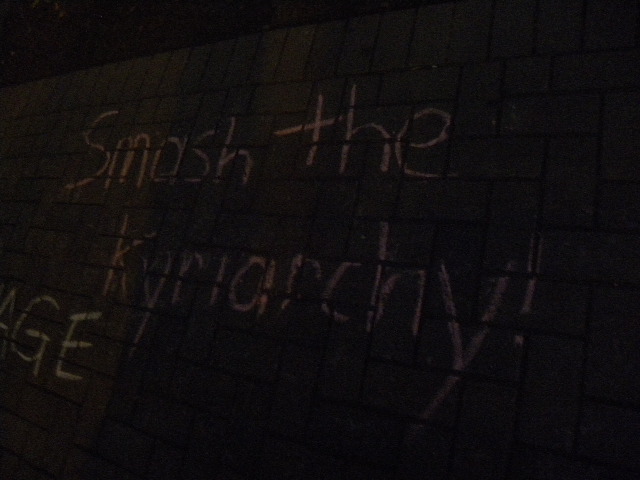 Smash the
kyriarchy!
AGE